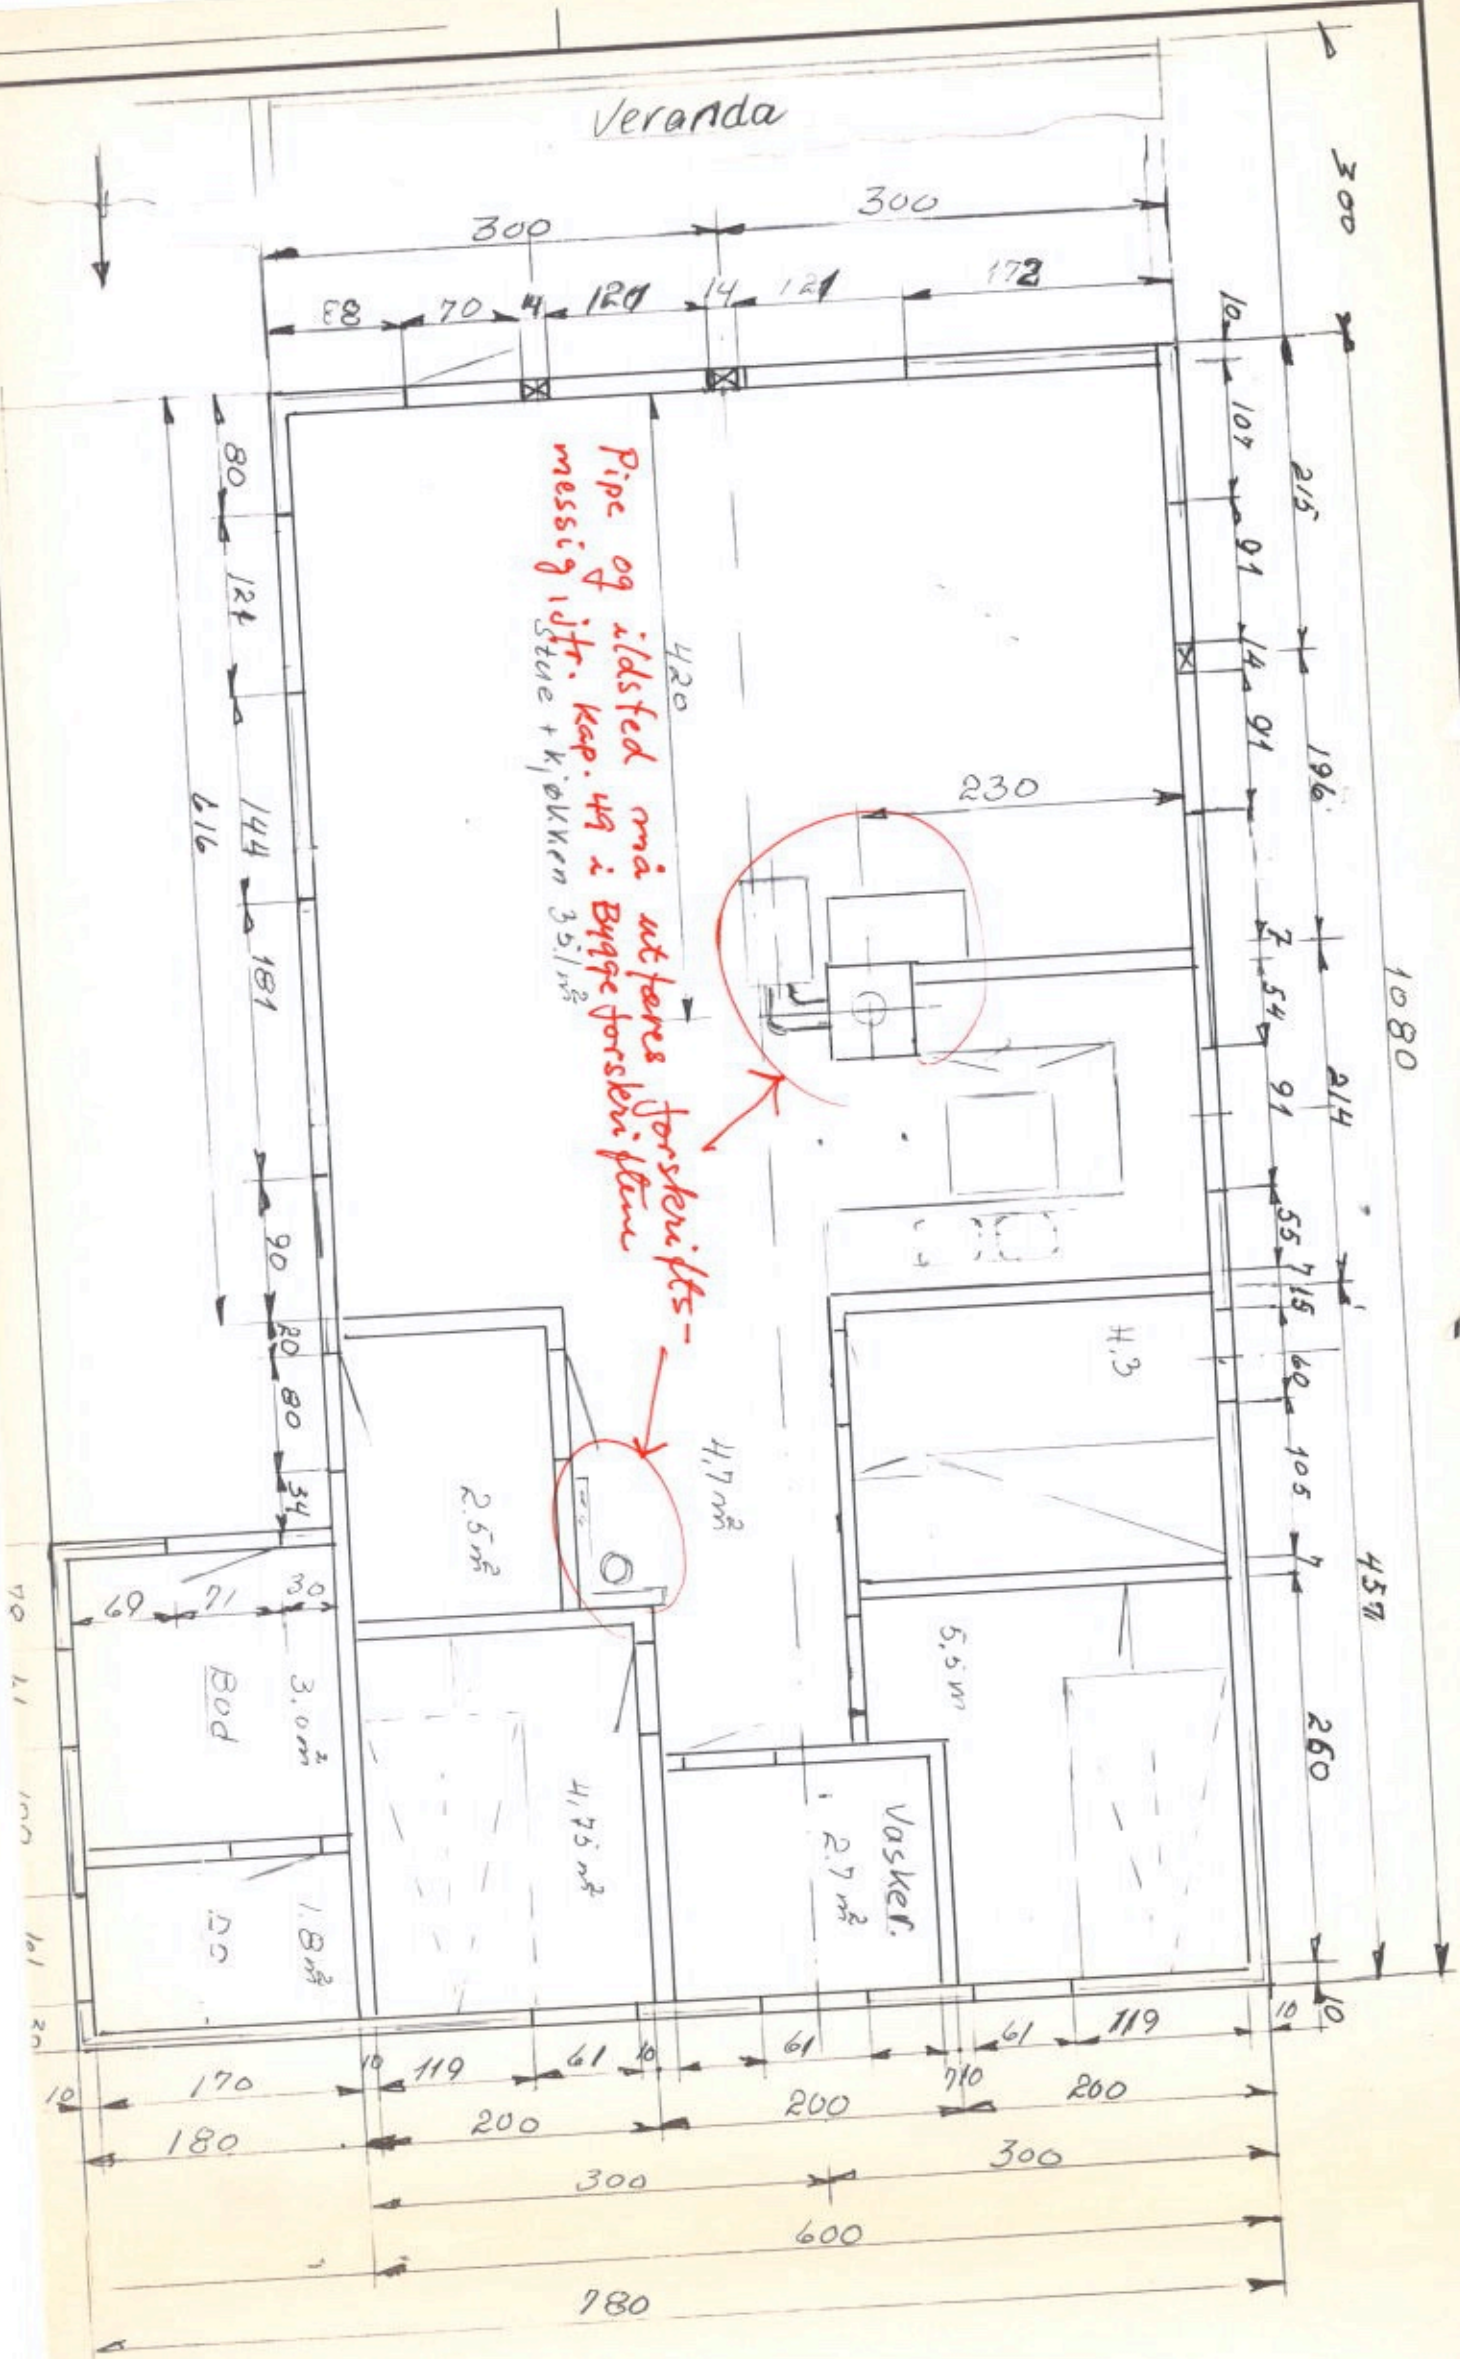 Veranda
300
300
300
83
70
14
121
14
121
172
10
107
91
14
91
7
54
91
55
7
15
60
105
7
260
10
215
196
214
457
1080
80
121
144
181
90
20
80
34
616
420
230
Pipe og ildsted må utføres forskrifts-
messig, jfr. kap. 49 i Byggeforskriftene
Stue + kjøkken 35.1 m²
H.3
4,7 m²
2.5 m²
5,5 m
30
71
69
3.0 m²
Bod
4,75 m²
Vasker.
2.7 m²
1.8 m²
70
100
101
20
10
170
10
119
61
10
61
7
10
61
119
10
180
200
200
200
300
300
600
780